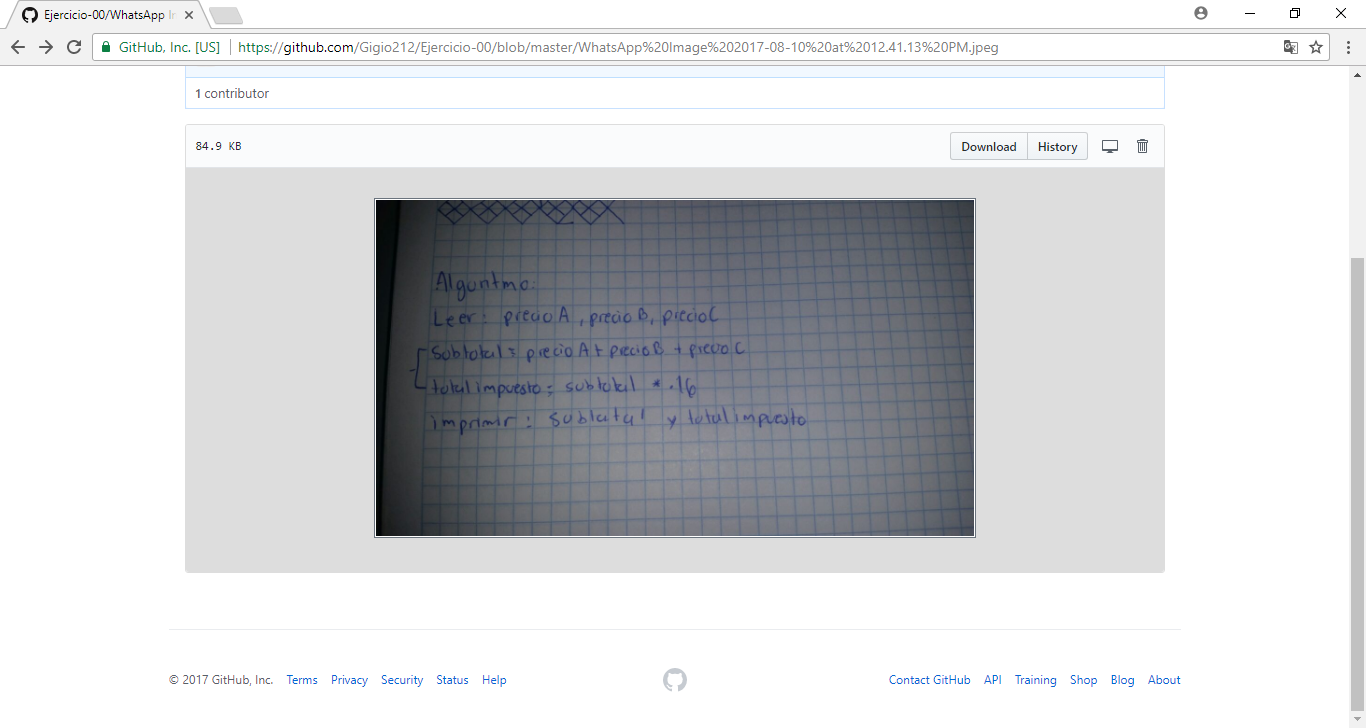 Ejercicio-00/WhatsApp Im
GitHub, Inc. [US] https://github.com/Gigio212/Ejercicio-00/blob/master/WhatsApp%20Image%202017-08-10%20at%2012.41.13%20PM.jpeg
1 contributor
84.9 KB Download History
Algoritmo:
Leer: precio A, precio B, precio C
Subtotal = precio A + precio B + precio C
total impuesto = subtotal * .16
imprimir: subtotal y total impuesto
© 2017 GitHub, Inc. Terms Privacy Security Status Help Contact GitHub API Training Shop Blog About